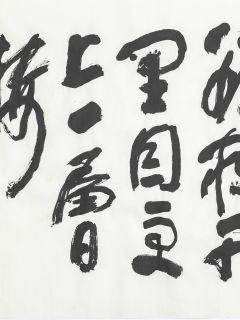 欲窮千
里目更
上一層
樓